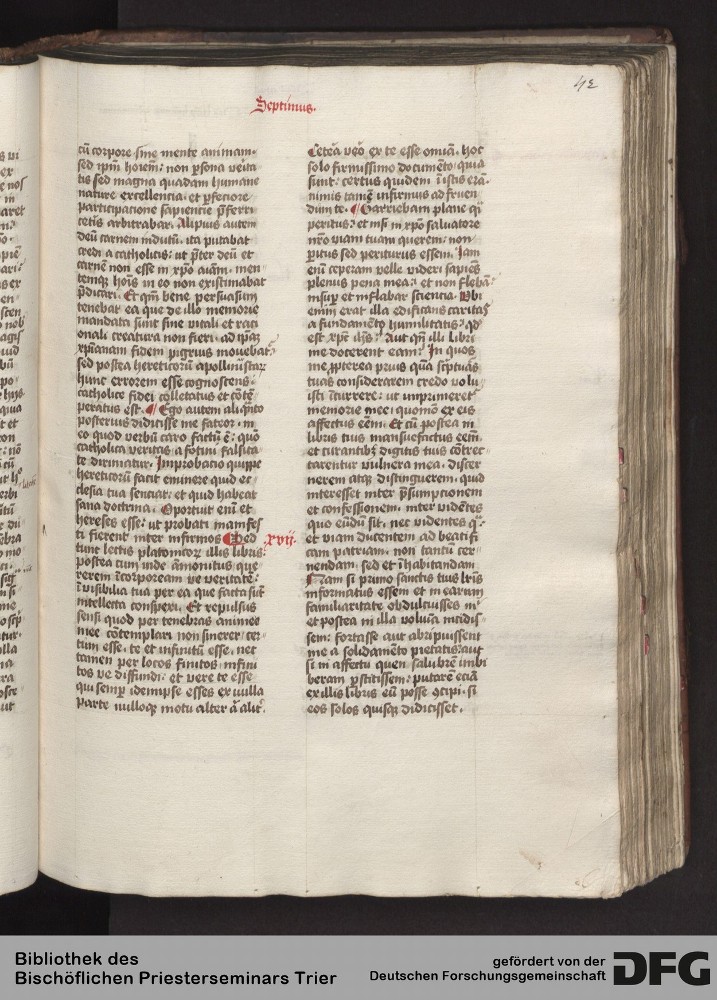 42
Septimus.
cū corpore sine mente animam.
sed ipm̄ hoīem: non ꝑsona veīta
tis sed magna quadam humane
nature excellencia. et ꝑfeciore
participacione sapiencie p̄ferri
ceteris arbitrabar. Alipius autem
deū carnem indutū. ita putabat
credi a catholicis. ut p̄ter deū et
carnē non esse in xp̄o aīam. men
temqꝫ hoīs in eo non existimabat
p̄dicari. Et qm̄ bene persuasum
tenebat ea que de illo memorie
mandata sunt sine vitali et raci
onali creatura non fieri. ad ip̄aꝫ
xp̄ianam fidem pigrius mouebat᷑.
sed postea hereticorū apollinistarꝫ
hunc errorem esse cognoscens.
catholice fidei colletatus et cōtē
peratus est. ¶ Ego autem aliqn̄to
posterius didicisse me fateor. in
eo quod verbū caro factū ē: quō
catholica veritas a fotini falsita
te dirimatur. Improbacio quippe
hereticorū facit eminere quid ec
clesia tua senciat: et quid habeat
sana doctrina. Oportuit enī et
hereses esse: ut probati manifes
ti fierent inter infirmos ¶ Sed xvij.
tunc lectis platonicorꝫ illis libris:
postea cum inde āmonitus que
rerem īcorpoream ve veritatē:
īvisibilia tua per ea que facta sūt
intellecta conspexi. Et repulsus
sensi quod per tenebras animee
mee cōtemplari non sinerer. cer
tum esse. te et infinitū esse. nec
tamen per locos finitos infini
tos ve diffundi. et vere te esse
qui semꝑ idemipse esses ex nulla
parte nulloqꝫ motu alter ā alit᷑.
Cetēa vēo ex te esse omīa. hoc
solo firmissimo documēto. quia
sunt. certus quidem ī istis erā.
nimis tamē infirmus ad fruen
dum te. ¶ Garriebam plane qi̇
peritus: et nisi in xp̄o saluatore
nr̄o viam tuam querem: non
ꝑitus sed periturus essem. Iam
enī ceperam velle videri sapiēs
plenus pena mea: et non flebā:
insuꝑ et inflabar sciencia. Vbi
enim erat illa edificans caritas
a fundamēto humilitatis: qd̄
est xp̄c ih̄s? Aut qn̄ illi libri
me docerent eam? In quos
me ꝓpterea prius quā sc̄pturas
tuas considerarem credo volu
isti īcurrere: ut imprimeret᷑
memorie mee: quomō ex eis
affectus eēm. Et cū postea in
libris tuis mansuefactus eēm.
et curantibꝫ digitis tuis cōtrec
tarentur vulnera mea. discer
nerem atqꝫ distinguerem. quid
interesset inter p̄sumpcionem
et confessionem. inter vidētes
quo eūdū sit. nec videntes qᷓ.
et viam ducentem ad beatifi
cam patriam. non tantū cer
nendam. sed et īhabitandam
Nam si primo sanctis tuis lr̄is
informatus essem et in earum
familiaritate obdulcuisses mi̇
et postea in illa volumīa incidis
sem: fortasse aut abripuissent
me a solidamēto pietatis: aut
si in affectu quem salubrē imbi
beram ꝑstitissem: putarē eciā
ex illis libris eū posse ꝯcipi. si
eos solos quisqꝫ didicisset.
Bibliothek des
Bischöflichen Priesterseminars Trier
gefördert von der
Deutschen Forschungsgemeinschaft
DFG